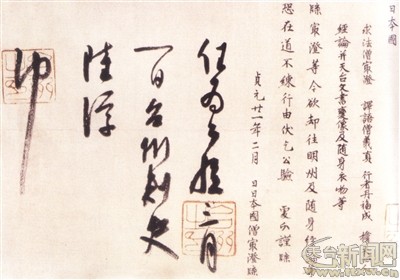 日本國
求法僧最澄 譯語僧義真 行者丹福成 擔
經論并天台文書變像及隨身衣物等
牒最澄等今欲却往明州及隨身經
恐在道不練行由伏乞公驗 處分謹牒
貞元廿一年二月 日日本國僧最澄牒
任為公驗三月
一日台州刺史
陸淳
印
台新闻网